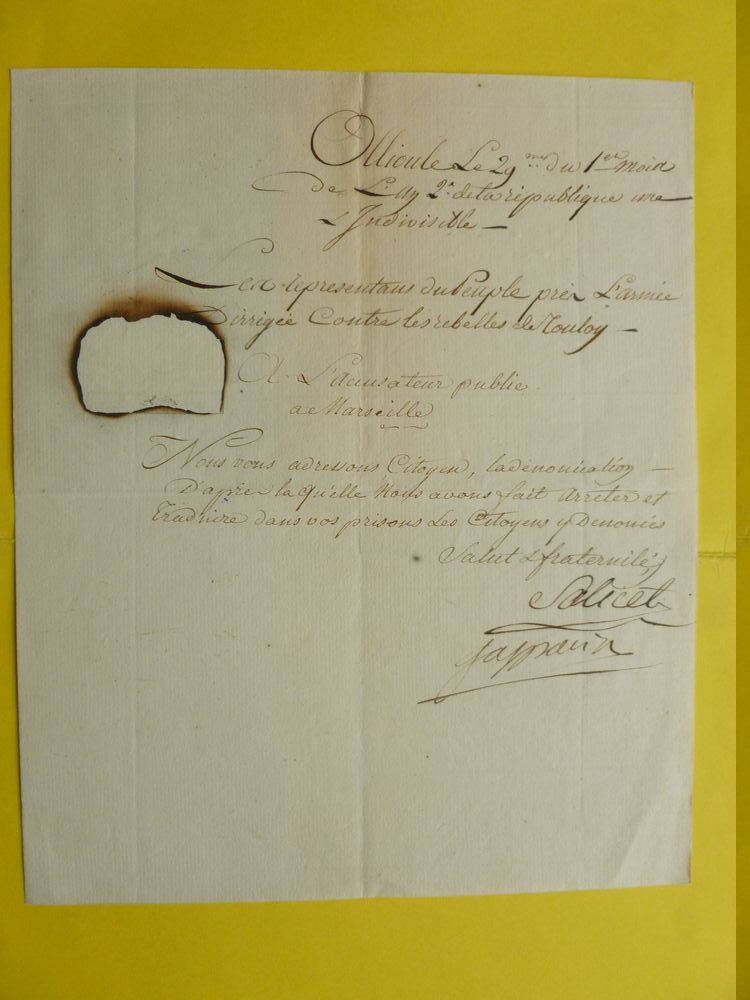 Ollioule Le 29.me du 1er mois
de L'an 2e. de la république une
& Indivisible —
Les représentans du Peuple près L'armée
Dirrigée Contre les rebelles de Toulon —
A L'accusateur public
a Marseille
Nous vous adressons Citoyen, la dénonciation —
D'après la qu'elle Nous avons fait Arrêter et
Traduire dans vos prisons Les Citoyens y Denoncés
Salut & fraternité,
Saliceti
Gasparin